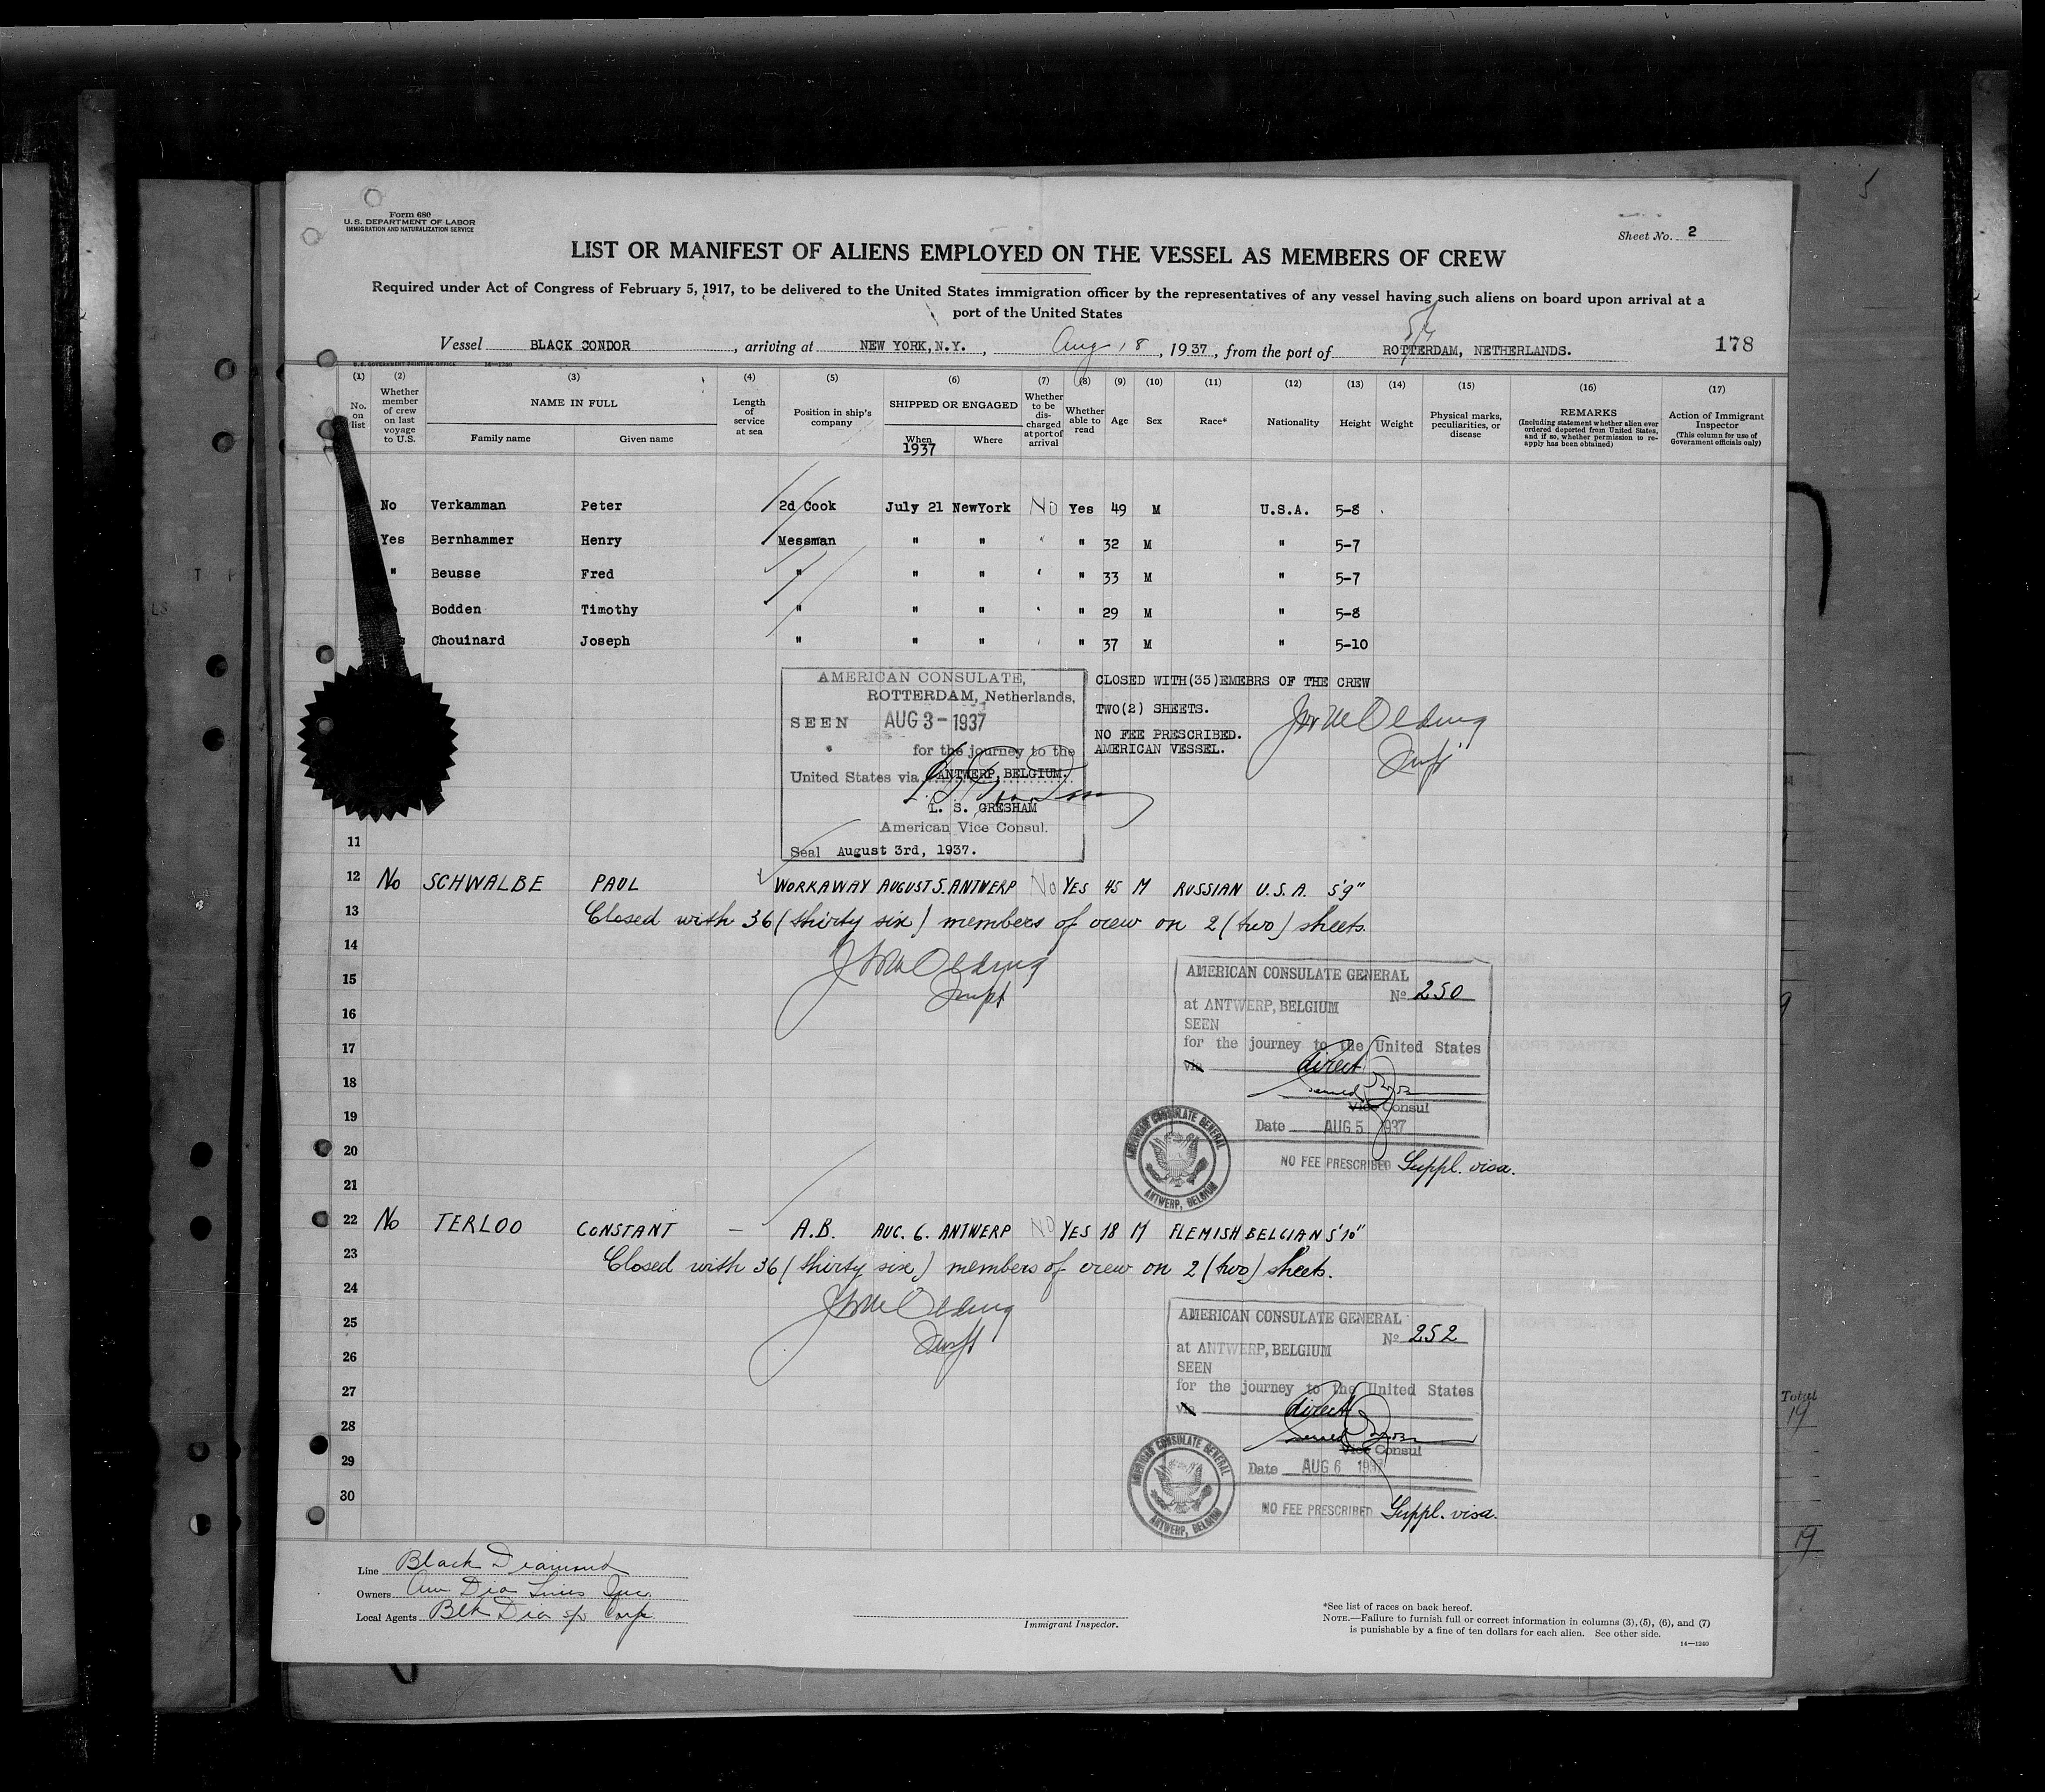 Form 680
U. S. DEPARTMENT OF LABOR
IMMIGRATION AND NATURALIZATION SERVICE
Sheet No. 2
LIST OR MANIFEST OF ALIENS EMPLOYED ON THE VESSEL AS MEMBERS OF CREW
Required under Act of Congress of February 5, 1917, to be delivered to the United States immigration officer by the representatives of any vessel having such aliens on board upon arrival at a
port of the United States
Vessel BLACK CONDOR, arriving at NEW YORK, N.Y., Aug 18, 1937, from the port of ROTTERDAM, NETHERLANDS. 178
U. S. GOVERNMENT PRINTING OFFICE 14—1240
(1) (2) (3) (4) (5) (6) (7) (8) (9) (10) (11) (12) (13) (14) (15) (16) (17)
No. on list
Whether member of crew on last voyage to U.S.
NAME IN FULL
Family name Given name
Length of service at sea
Position in ship's company
SHIPPED OR ENGAGED
When Where
1937
Whether to be discharged at port of arrival
Whether able to read
Age
Sex
Race*
Nationality
Height
Weight
Physical marks, peculiarities, or disease
REMARKS
(Including statement whether alien ever ordered deported from United States, and if so, whether permission to re-apply has been obtained)
Action of Immigrant Inspector
(This column for use of Government officials only)
No Verkamman Peter 2d Cook July 21 NewYork No Yes 49 M U.S.A. 5-8
Yes Bernhammer Henry Messman " " " " 32 M " 5-7
" Beusse Fred " " " " " 33 M " 5-7
Bodden Timothy " " " " " 29 M " 5-8
Chouinard Joseph " " " " " 37 M " 5-10
AMERICAN CONSULATE,
ROTTERDAM, Netherlands,
SEEN AUG 3-1937
for the journey to the
United States via ANTWERP, BELGIUM.
L. S. GRESHAM
American Vice Consul.
Seal August 3rd, 1937.
CLOSED WITH(35)EMEBRS OF THE CREW
TWO(2) SHEETS.
NO FEE PRESCRIBED.
AMERICAN VESSEL.
11
12 No SCHWALBE PAUL WORKAWAY AUGUST 5. ANTWERP No YES 45 M RUSSIAN U.S.A. 5'9"
13 Closed with 36 (thirty six) members of crew on 2 (two) sheets.
14
15
16
17
18
19
20
21
AMERICAN CONSULATE GENERAL
No 250
at ANTWERP, BELGIUM
SEEN
for the journey to the United States
via direct
Vice Consul
Date AUG 5 1937
AMERICAN CONSULATE GENERAL
ANTWERP, BELGIUM
NO FEE PRESCRIBED Suppl. visa.
22 No TERLOO CONSTANT — A.B. AUG. 6. ANTWERP NO YES 18 M FLEMISH BELGIAN 5'10"
23 Closed with 36 (thirty six) members of crew on 2 (two) sheets.
24
25
26
27
28
29
30
AMERICAN CONSULATE GENERAL
No 252
at ANTWERP, BELGIUM
SEEN
for the journey to the United States
via direct
Vice Consul
Date AUG 6 1937
AMERICAN CONSULATE GENERAL
ANTWERP, BELGIUM
NO FEE PRESCRIBED Suppl. visa.
Total
19
19
Line Black Diamond
Owners Am Dia Lines Inc.
Local Agents Blk Dia s/s Corp.
Immigrant Inspector.
*See list of races on back hereof.
NOTE.—Failure to furnish full or correct information in columns (3), (5), (6), and (7)
is punishable by a fine of ten dollars for each alien. See other side.
14—1240